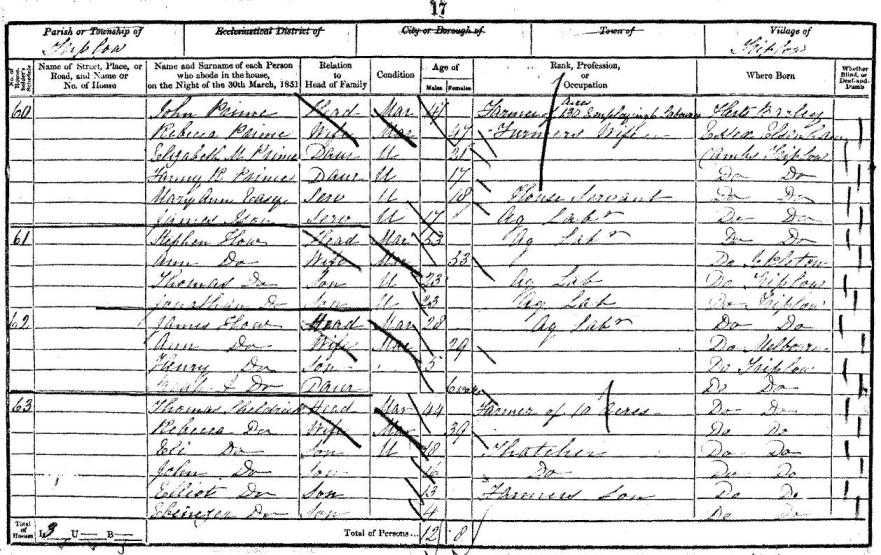 17
Parish or Township of Ecclesiastical District of City or Borough of Town of Village of
Triplow Triplow
No. of House-holder's Schedule Name of Street, Place, or Road, and Name or No. of House Name and Surname of each Person who abode in the house, on the Night of the 30th March, 1851 Relation to Head of Family Condition Age of Males Females Rank, Profession, or Occupation Where Born Whether Blind, or Deaf-and-Dumb
60 John Prime Head Mar Farmer of 130 Acres Employing Labourers Herts Barley
Rebecca Prime Wife Mar 47 Farmers Wife Essex Elsenham
Elizabeth M Prime Daur U 21 Cambs Triplow
Fanny R Prime Daur U 17 Do Do
Mary Ann Easy Serv U 18 House Servant Do Do
James Serv U 17 Ag Labr Do Do
61 Stephen Flow Head Mar 53 Ag Labr Do Do
Ann Do Wife Mar 53 Do Ickleton
Thomas Do Son U 23 Ag Lab Do Triplow
Jonathan Do Son U 23 Ag Lab Do Triplow
62 James Flow Head Mar 28 Ag Labr Do Do
Ann Do Wife Mar 29 Do Melbourn
Henry Do Son 5 Do Triplow
Do Daur Do Do
63 Thomas Head Mar 44 Farmer of 10 Acres Do Do
Rebecca Do Wife Mar 39 Do Do
Eli Do Son U 18 Thatcher Do Do
John Do Son 16 Do Do Do
Elliot Do Son 13 Farmers Son Do Do
Ebenezer Do Son 4 Do Do
Total of Houses I 3 U — B — Total of Persons... 12 8